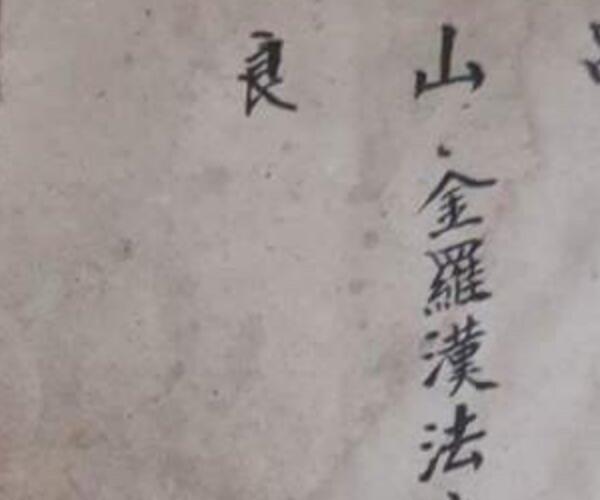 山金羅漢法
良